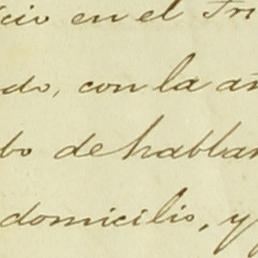 cio en el Tri
do, con la añ
bo de hablar
domicilio, y